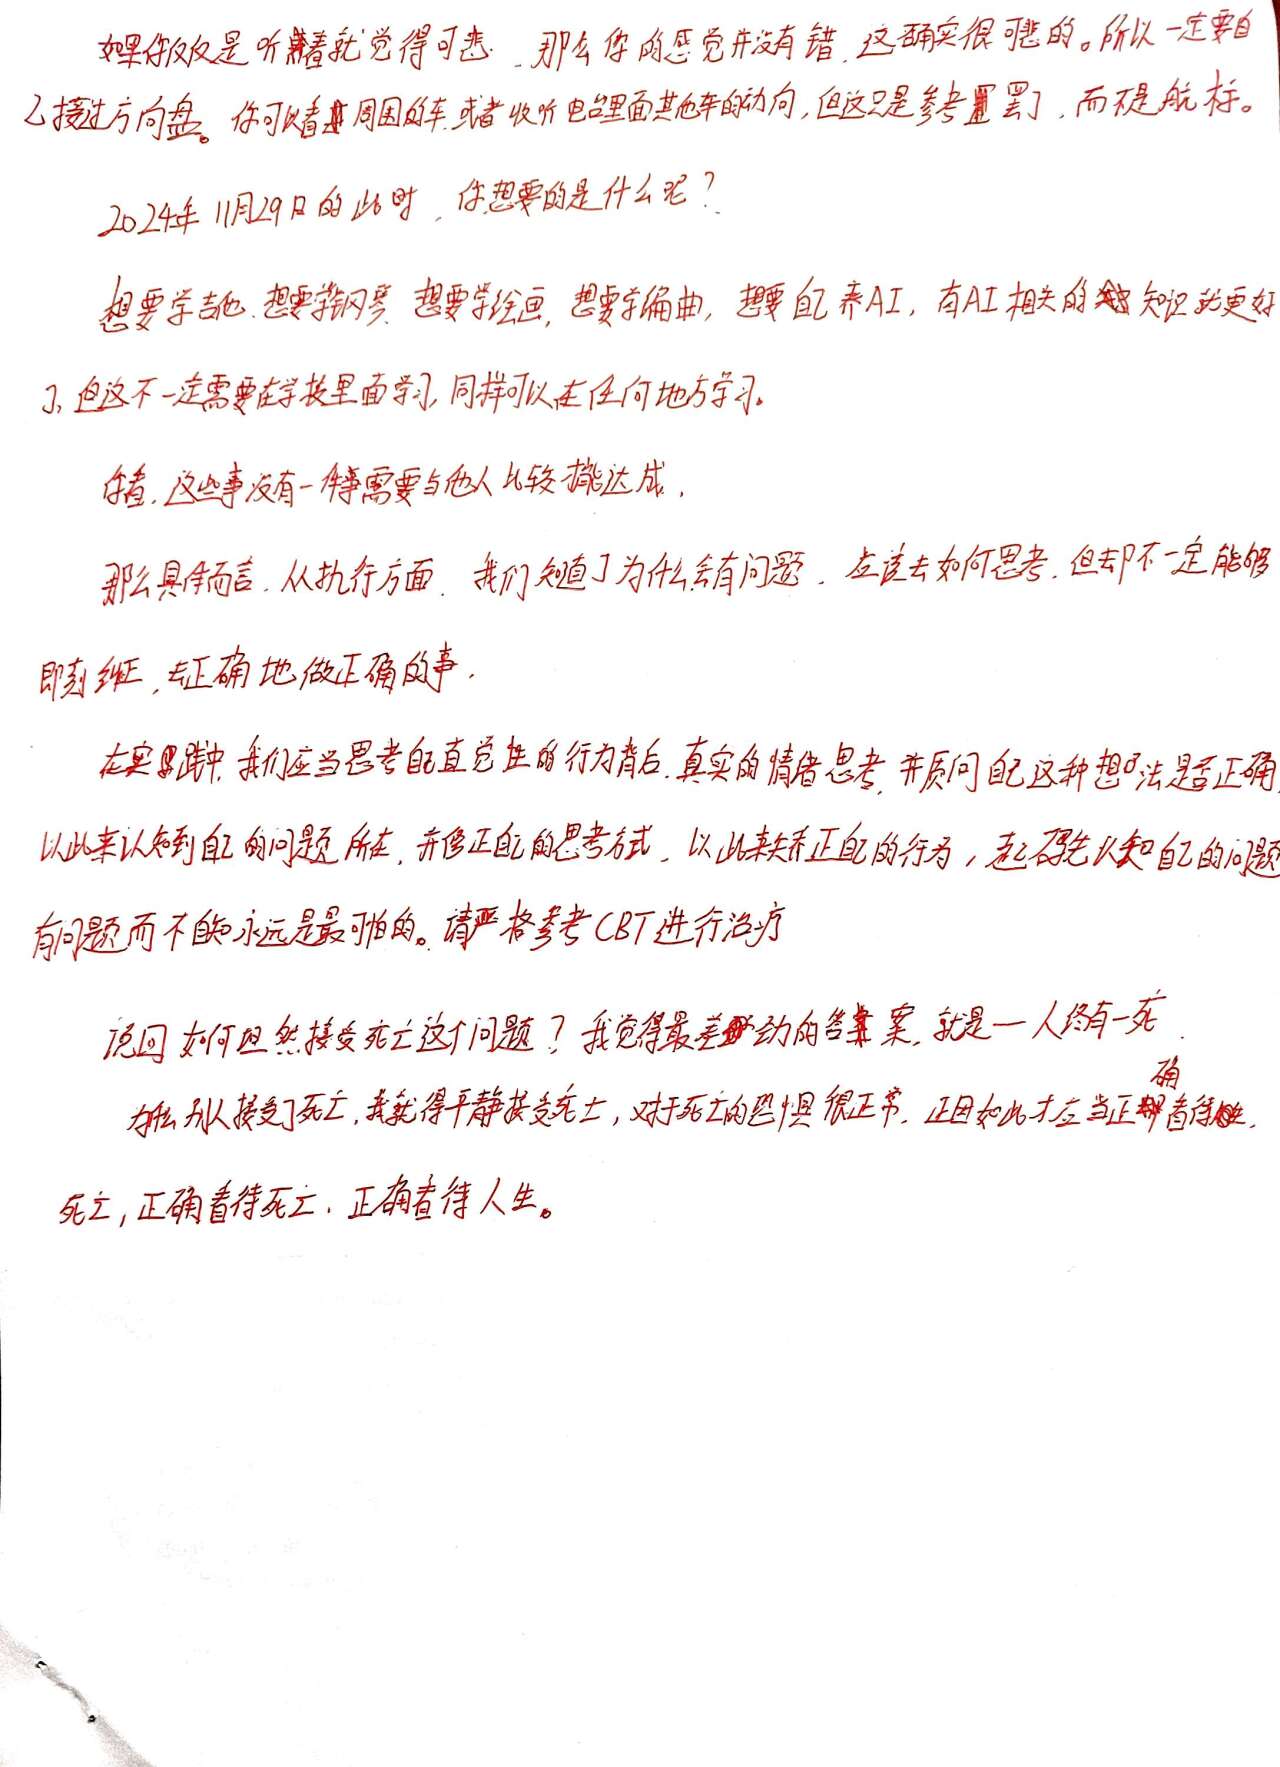 如果你仅仅是听着就觉得可悲，那么你的感觉并没有错，这确实很可悲的。所以一定要自
己接过方向盘。你可以看周围的车，或者收听电台里面其他车的动向，但这只是参考罢了，而不是航标。
2024年11月29日的此时，你想要的是什么呢？
想要学吉他、想要学钢琴，想要学绘画，想要学编曲，想要自己养AI，有AI相关的知识就更好
了，但这不一定需要在学校里面学习，同样可以在任何地方学习。
你看，这些事没有一件事需要与他人比较才能达成，
那么具体而言，从执行方面，我们知道了为什么会有问题，应该去如何思考，但却不一定能够
即刻纠正，去正确地做正确的事，
在实践中，我们应当思考自己直觉性的行为背后，真实的情绪思考，并质问自己这种想法是否正确，
以此来认知到自己的问题所在，并修正自己的思考方式，以此来矫正自己的行为，起码先认知自己的问题
有问题而不自知永远是最可怕的。请严格参考CBT进行治疗
说回如何坦然接受死亡这个问题？我觉得最差劲的答案，就是一人终有一死，
为什么别人接受了死亡，我就得平静接受死亡，对于死亡的恐惧很正常，正因如此才应当正确看待
死亡，正确看待死亡、正确看待人生。